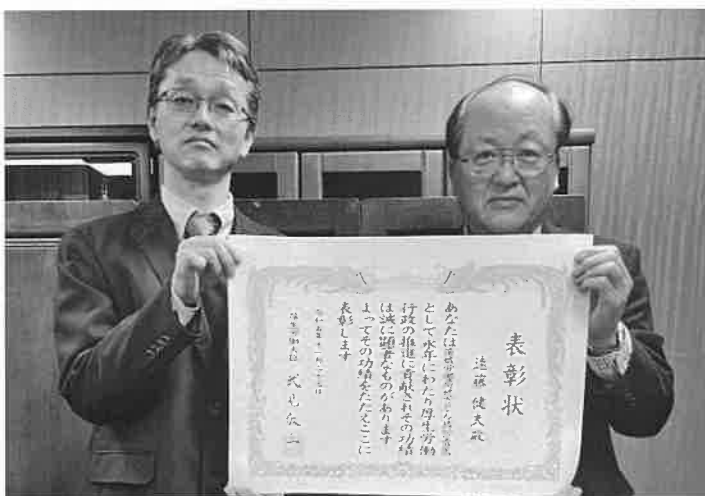 表彰状
遠藤 健夫殿
あなたは
として永年にわたり厚生労働
行政の推進に貢献されその功績
は誠に顕著なものがあります
よってその功績をたたえここに
表彰します
厚生労働大臣 武見敬三